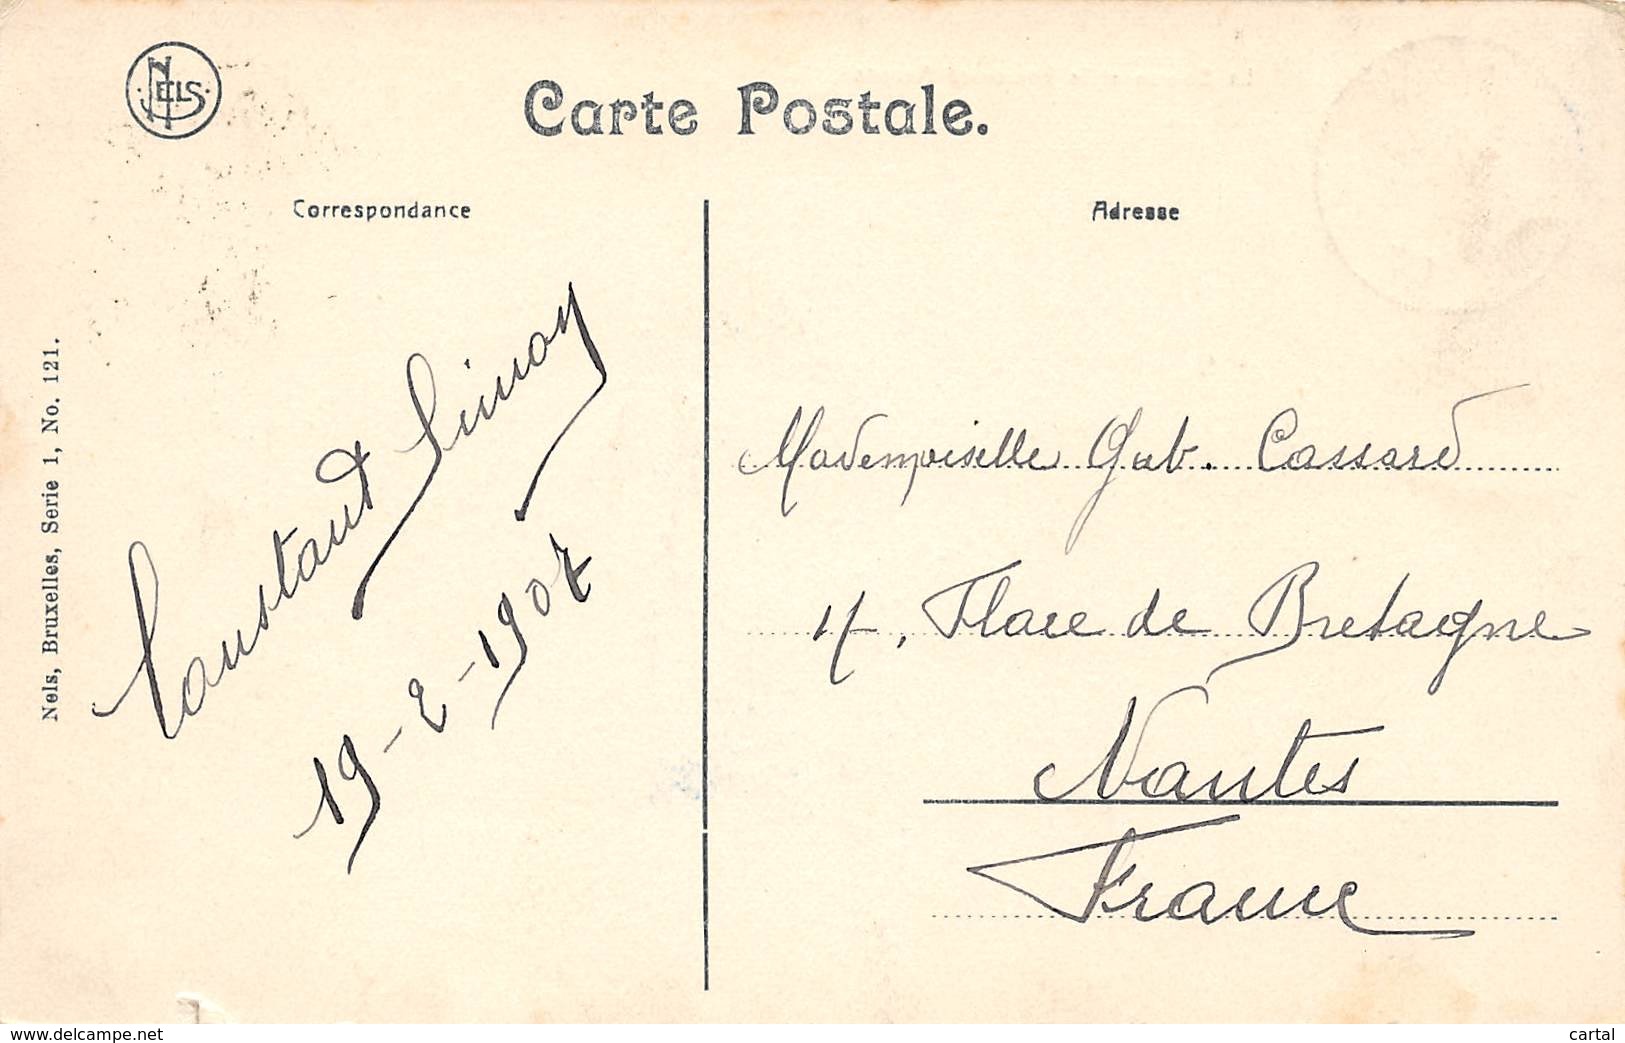 NELS
Carte Postale.
Correspondance
Adresse
Nels, Bruxelles, Serie 1, No. 121.
Constant Simoy
19-2-1907
Mademoiselle Gab. Cassard
17, Place de Bretagne
Nantes
France
www.delcampe.net
cartal